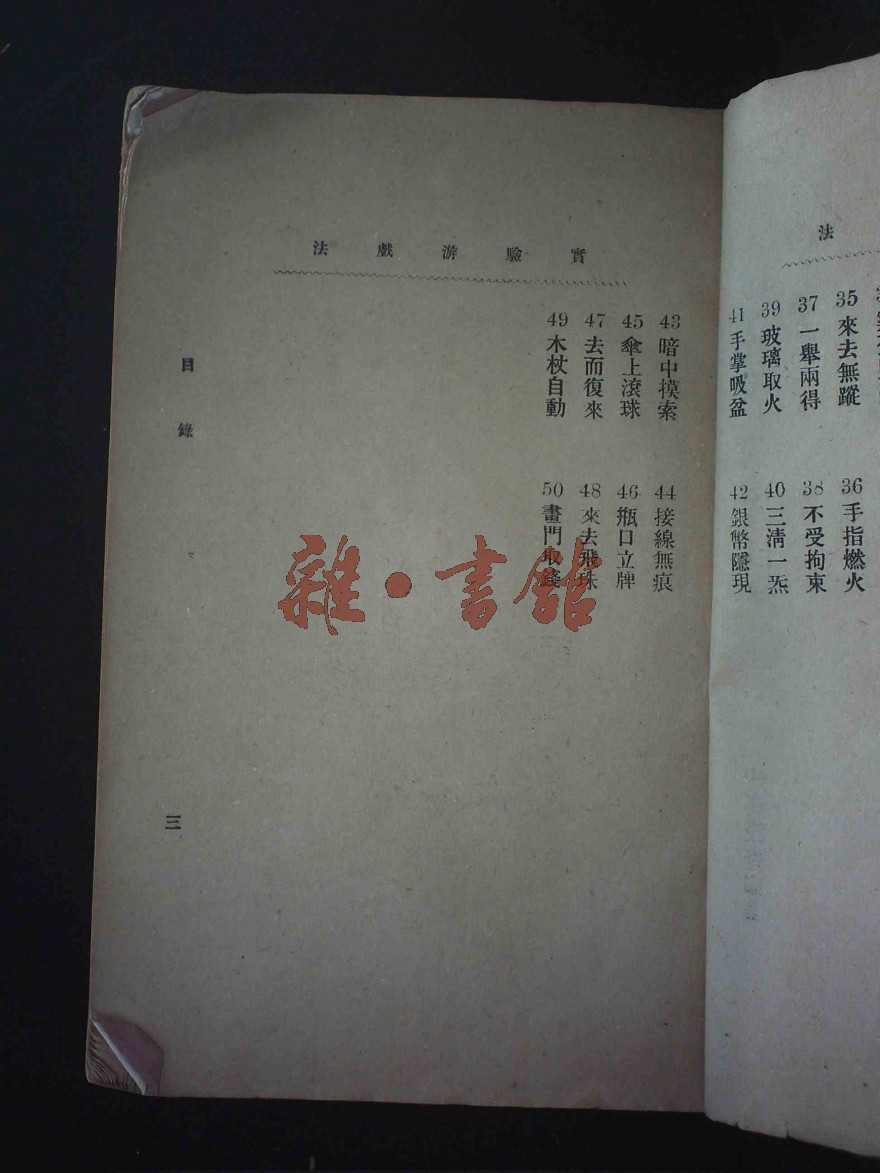 法
35 來去無蹤
36 手指燃火
37 一舉兩得
38 不受拘束
39 玻璃取火
40 三清一炁
41 手掌吸盆
42 銀幣隱現
實驗游戲法
43 暗中摸索
44 接線無痕
45 傘上滾球
46 瓶口立牌
47 去而復來
48 來去飛珠
49 木杖自動
50 畫門取錢
目錄
三
雜·書館